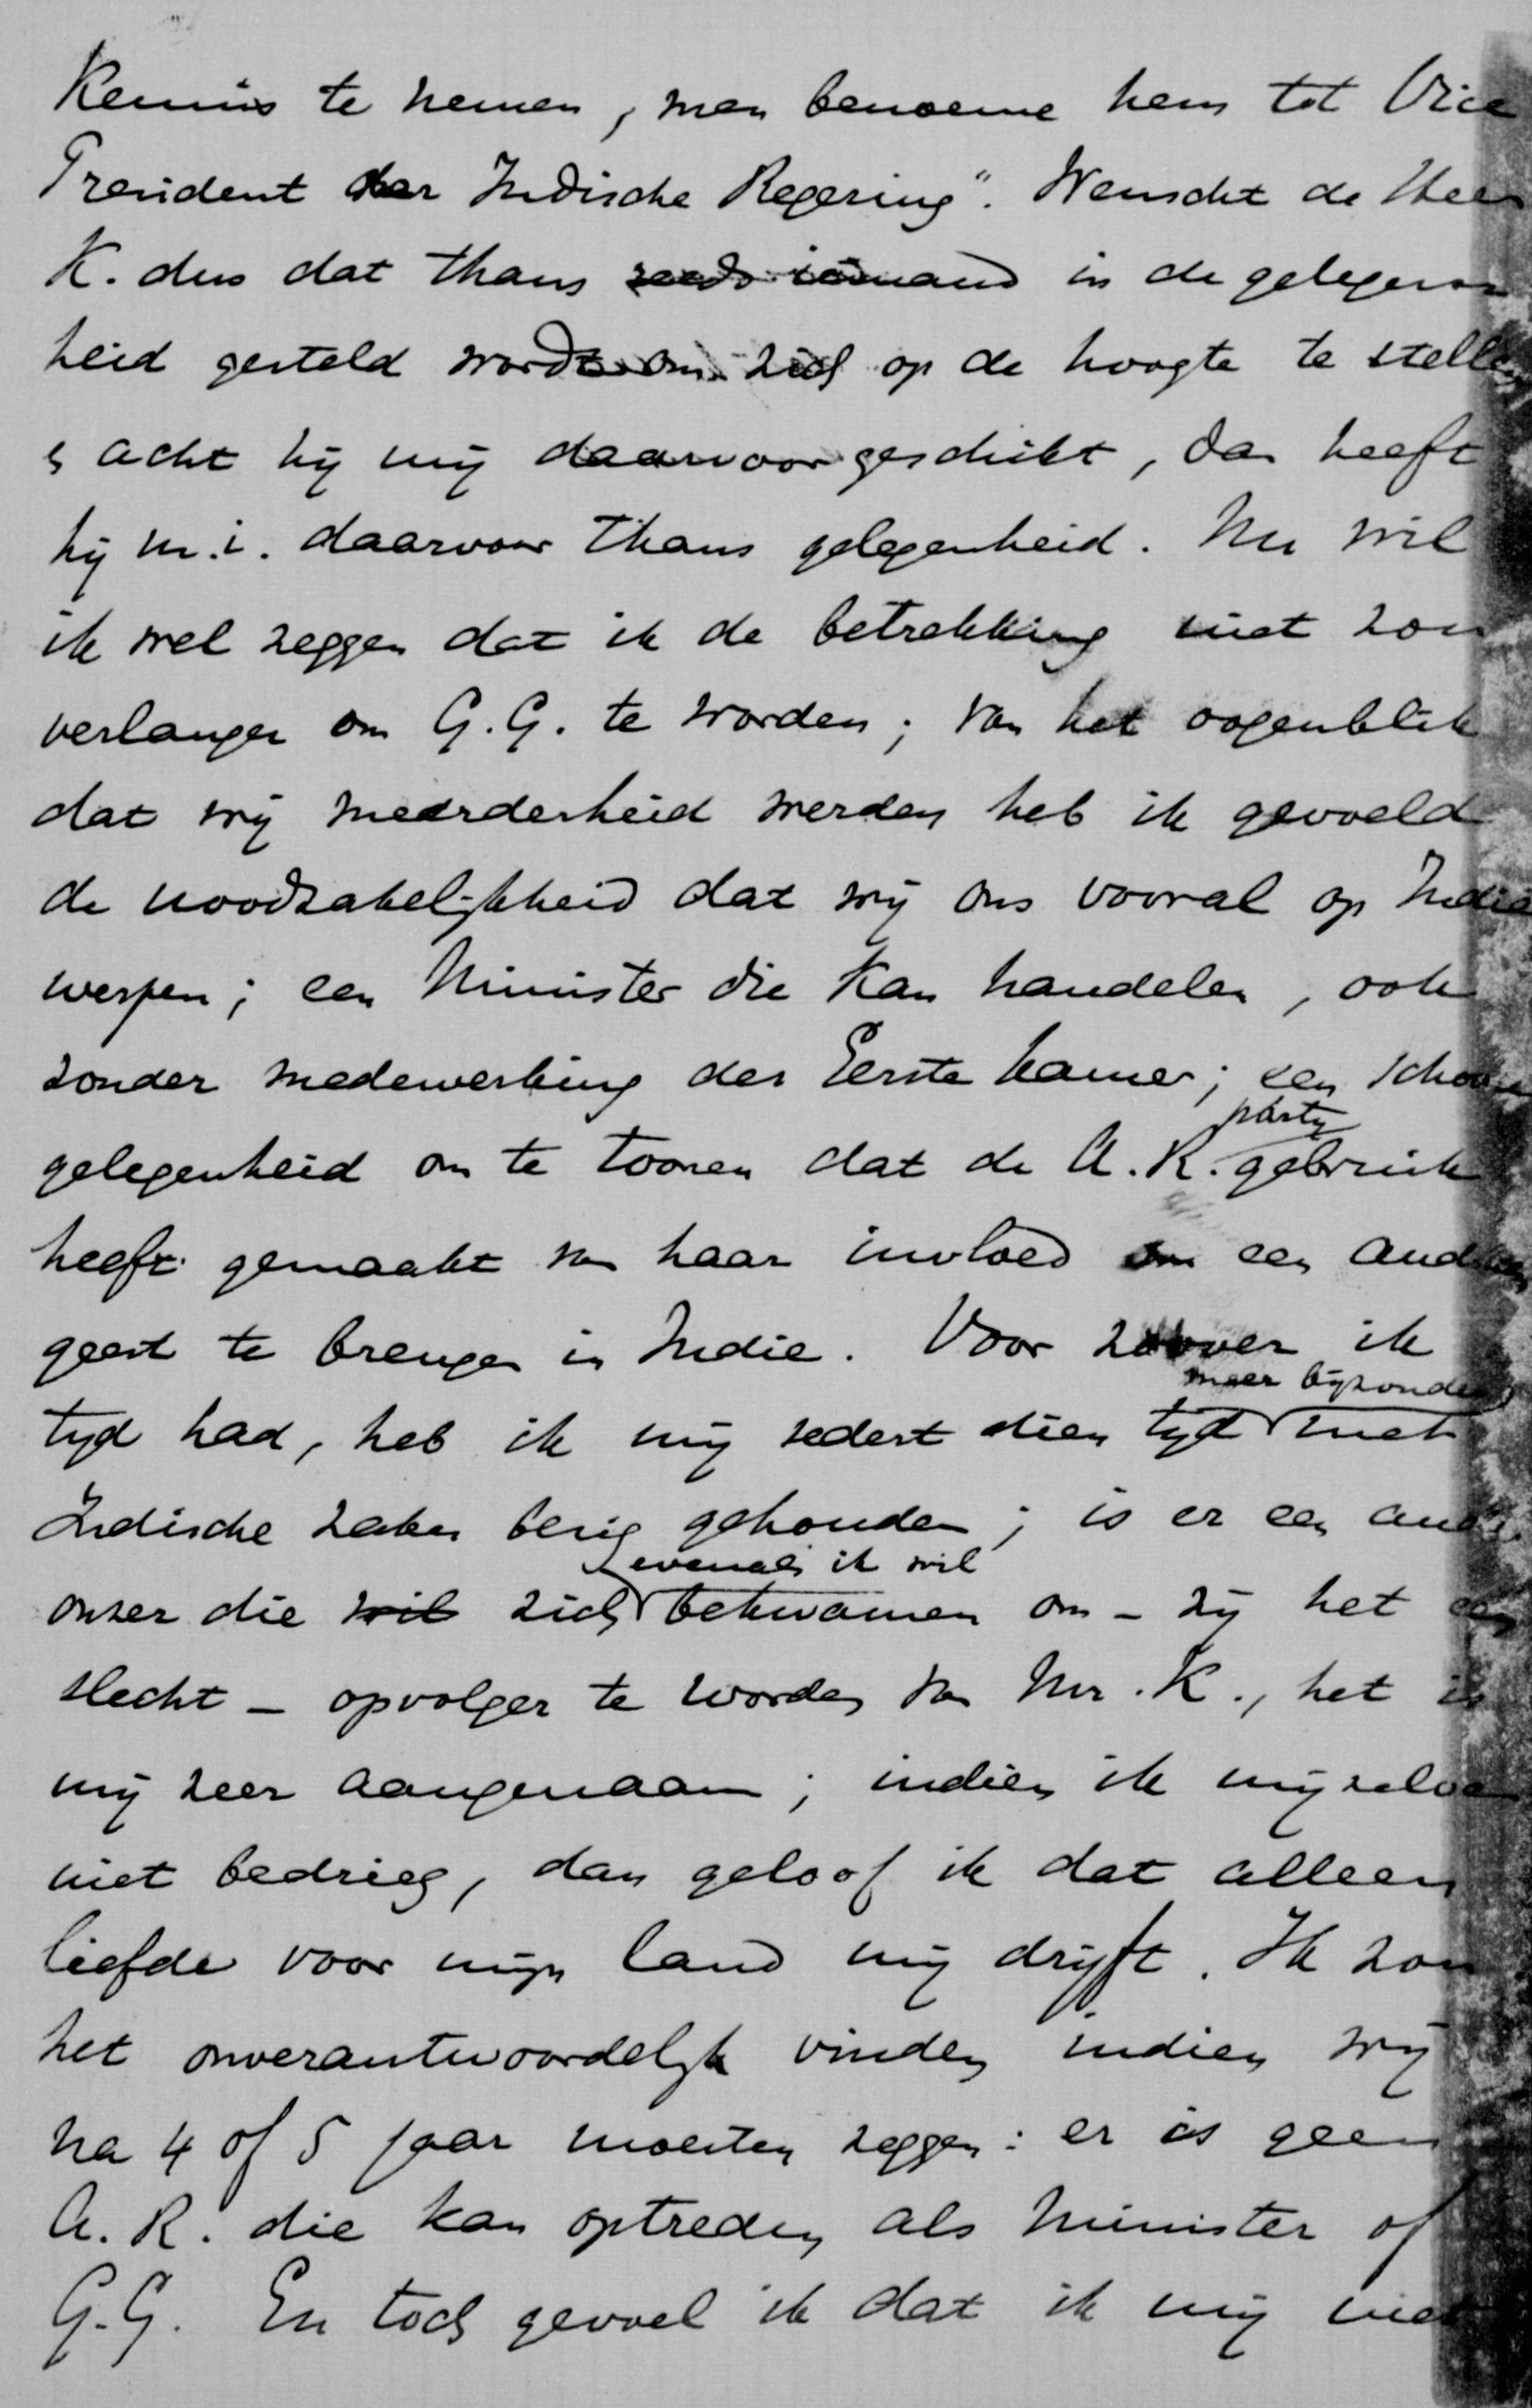 Kennis te nemen, men benoeme hem tot Vice
President der Indische Regering". Wenscht de Heer
K. dus dat thans reeds iemand in de gelegen
heid gesteld wordt om zich op de hoogte te stellen
& acht hij mij daarvoor geschikt, dan heeft
hij m.i. daarvoor thans gelegenheid. Nu wil
ik wel zeggen dat ik de betrekking niet zou
verlangen om G.G. te worden; van het oogenblik
dat wij meerderheid werden heb ik gevoeld
de noodzakelijkheid dat wij ons vooral op Indie
werpen; een Minister die kan handelen, ook
zonder medewerking der Eerste Kamer; een schoone
gelegenheid om te toonen dat de A.R. partij gebruik
heeft gemaakt van haar invloed om een anderen
geest te brengen in Indie. Voor zoover ik
tijd had, heb ik mij sedert dien tijd meer bijzonder met
Indische zaken bezig gehouden; is er een ander
onzer die wil zich evenals ik wil bekwamen om – zij het
slecht – opvolger te worden van Mr. K., het is
mij zeer aangenaam; indien ik mijzelve
niet bedrieg, dan geloof ik dat alleen
liefde voor mijn land mij drijft. Ik zou
het onverantwoordelijk vinden indien wij
na 4 of 5 jaar moesten zeggen: er is geen
A.R. die kan optreden als Minister of
G.G. En toch gevoel ik dat ik mij niet